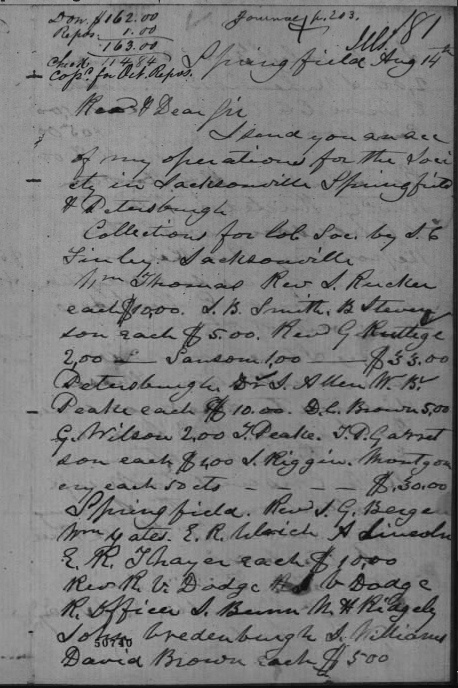 Don. $162.00
Repos. 1.00
163.00
Check 114.84
Copd. for Oct. Repos.
Journal p. 203.
181
Springfield Ills. Aug 14th
Rev & Dear Sir
I send you an acc
of my operations for the Soci
ety in Jacksonville Springfield
& Petersburgh
Collections for Col. Soc. by J. C
Finley. Jacksonville
Wm Thomas Rev J. Rucker
each $10,00. J. B. Smith, B Steven
son each $5.00. Rev G Rutlege
2,00 Sansom 1,00 $33.00
Petersburgh. Dr J. Allen W. B.
Peake each $10.00. D. C. Brown 5,00
G. Wilson 2,00 T. Peake. T. P. Garret
son each $1,00 J. Riggin. Montgom
ery each 50 cts $30.00
Springfield. Rev J. G. Berge
Wm Yates. E. R. Ulrich A Lincoln
E. R. Thayer each $10,00
Rev R. V. Dodge V Dodge
R. Officer J. Bunn N. H Ridgely
John Vredenburgh J. Williams
50740
David Brown each $5 00